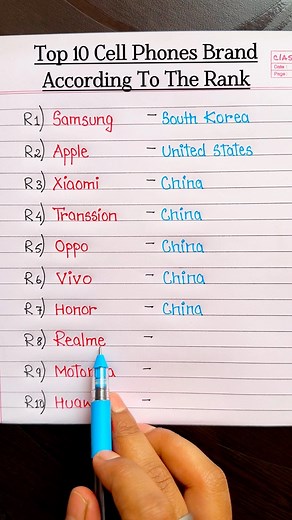 Top 10 Cell Phones Brand
According To The Rank
Date :
Page :
R1) Samsung - South Korea
R2) Apple - United States
R3) Xiaomi - China
R4) Transsion - China
R5) Oppo - China
R6) Vivo - China
R7) Honor - China
R8) Realme -
R9) -
R10) -